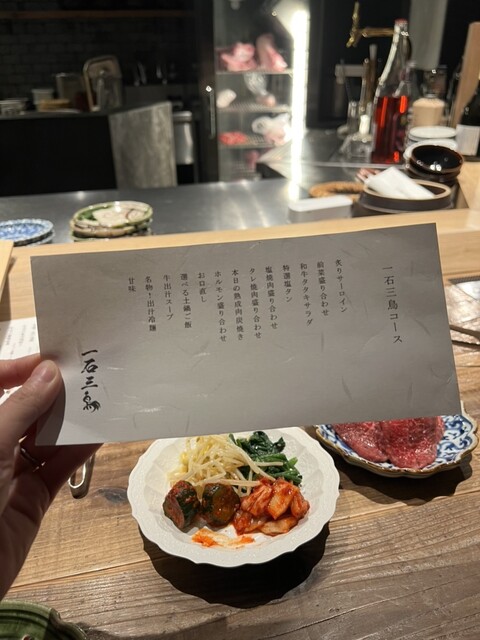 一石三鳥コース
炙りサーロイン
前菜盛り合わせ
和牛タタキサラダ
特選塩タン
塩焼肉盛り合わせ
タレ焼肉盛り合わせ
本日の熟成肉炭焼き
ホルモン盛り合わせ
お口直し
選べる土鍋ご飯
牛出汁スープ
名物！出汁冷麺
甘味
一石三鳥